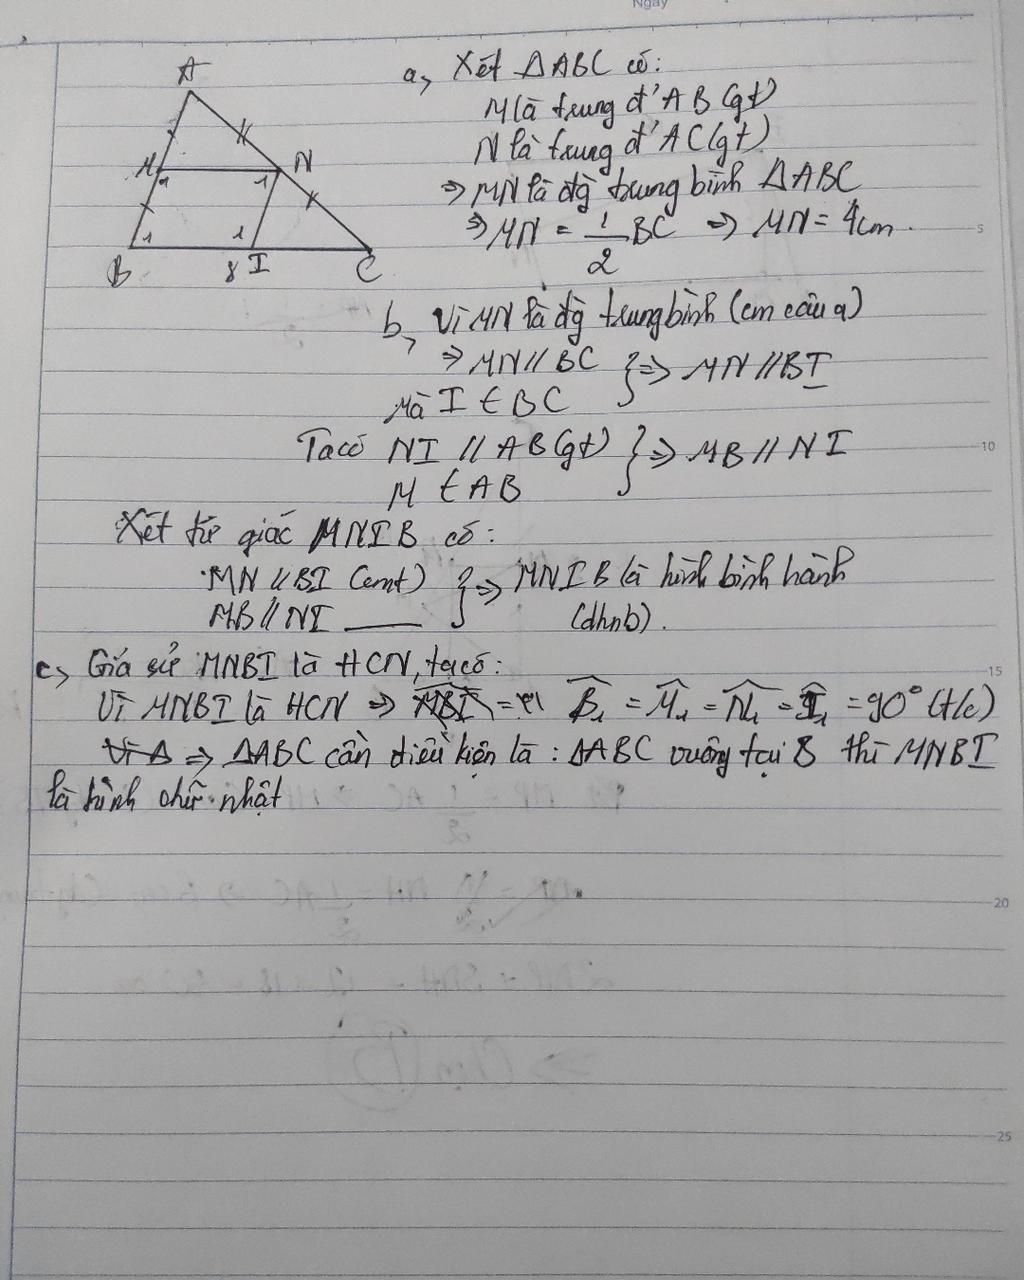 Ngày
A
a, Xét ΔABC có:
M là trung đ' AB (gt)
N là trung đ' AC (gt)
M 1 1 N
⇒ MN là đg trung bình ΔABC
⇒ MN = 1/2 BC ⇒ MN = 4cm.
5
1 1
B 8 I C
b, Vì MN là đg trung bình (cm câu a)
⇒ MN // BC } ⇒ MN // BI
Mà I ∈ BC
Ta có NI // AB (gt) } ⇒ MB // NI
10
M ∈ AB
Xét tứ giác MNIB có:
MN // BI (cmt) } ⇒ MNIB là hình bình hành
MB // NI ____ (dhnb).
c, Giả sử MNBI là HCN, ta có:
15
Vì MNBI là HCN ⇒ B̂₁ = M̂₁ = N̂₁ = Î₁ = 90° (t/c)
⇒ ΔABC cần điều kiện là : ΔABC vuông tại B thì MNBI
là hình chữ nhật
20
25